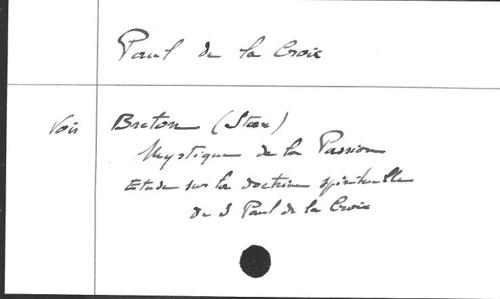 Paul de la Croix
Voir Breton (Stan)
Mystique de la Passion
Etude sur la doctrine spirituelle
de S Paul de la Croix